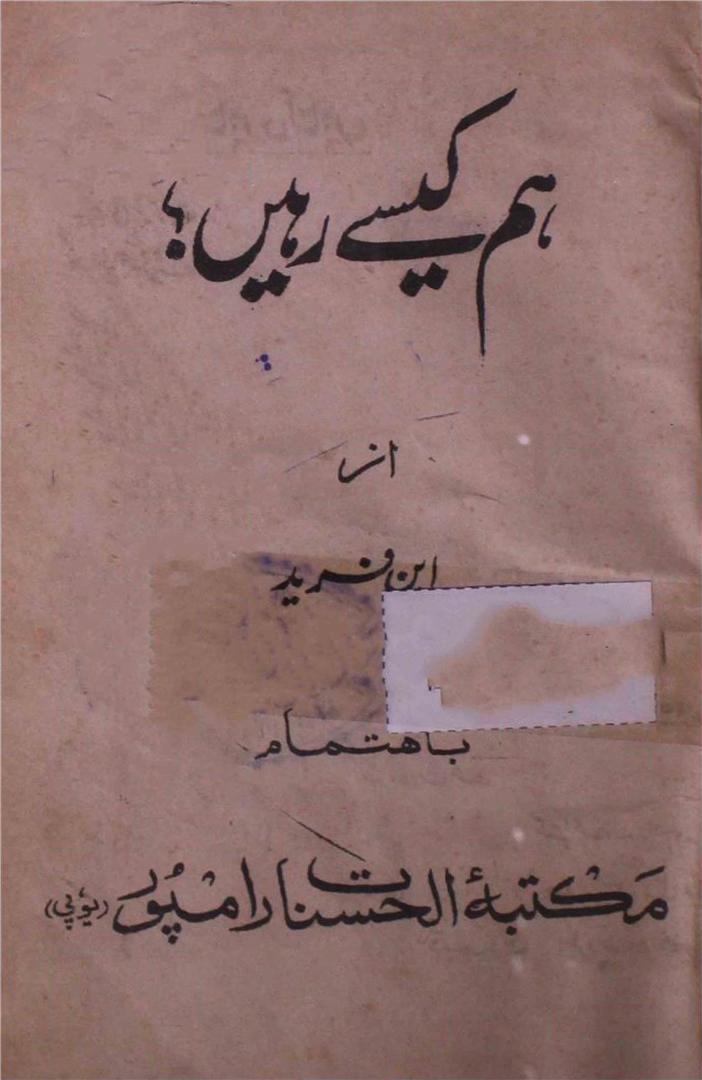 ہم کیسے رہیں؟
از
ابن فرید
باهتمام
مکتبۂ الحسنات رامپور (یوپی)